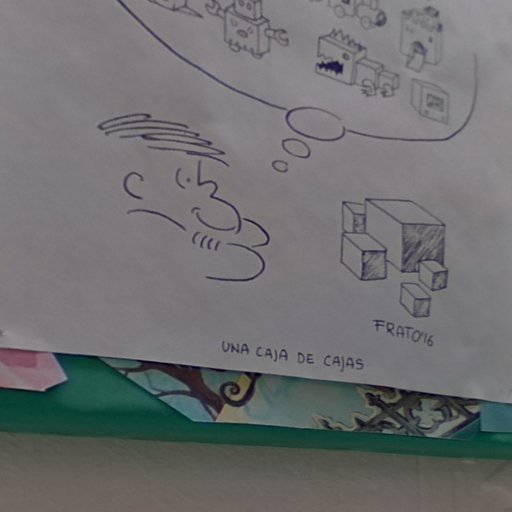 FRATO'16
UNA CAJA DE CAJAS